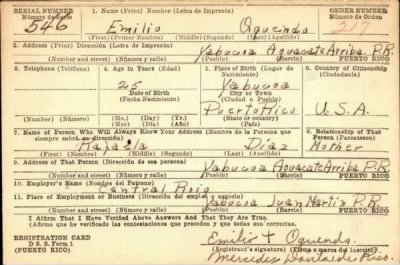 SERIAL NUMBER 1. Print) Nombre (Letra de Imprenta) ORDER NUMBER
Número de Serie Número de Orden
546 Emilio Oquendo 217
(First) (Primer Nombre) (Middle) (Segundo) (Last) (Apellido)
2. Address (Print) Dirección (Letra de Imprenta)
Yabucoa Aguacate Arriba P.R.
(Number and street) (Pueblo) (Barrio) PUERTO RICO
3. Telephone (Teléfono) 4. Age in Years (Edad) 5. Place of Birth (Lugar de Nacimiento) 6. Country of Citizenship (Ciudadanía)
25 Yabucoa
Date of Birth City or Town
(Fecha Nacimiento) (Ciudad o Pueblo)
Puerto Rico U.S.A.
(Mo.) (Day) (Yr.) (State or country)
(Mes) (Día) (Año) (País)
7. Name of Person Who Will Always Know Your Address (Nombre de la Persona que siempre sabrá su dirección) 8. Relationship of That Person (Parentesco)
Díaz Mother
(First) (Nombre) (Middle) (Segundo) (Last) (Apellido)
9. Address of That Person (Dirección de esa persona)
Yabucoa Aguacate Arriba P.R.
(Number and street) (Pueblo) (Barrio) PUERTO RICO
10. Employer's Name (Nombre del Patrono)
Central Roig
11. Place of Employment or Business (Dirección del empleo y negocio)
Yabucoa Juan Martin P.R.
(Number and street) (Pueblo) (Barrio) PUERTO RICO
I Affirm That I Have Verified Above Answers And That They Are True.
(Afirmo que he verificado las contestaciones que preceden y que todas son correctas.
REGISTRATION CARD
D. S. S. Form 1
(PUERTO RICO)
Emilio + Oquendo
(Registrant's signature) (Firma del
Mercedes